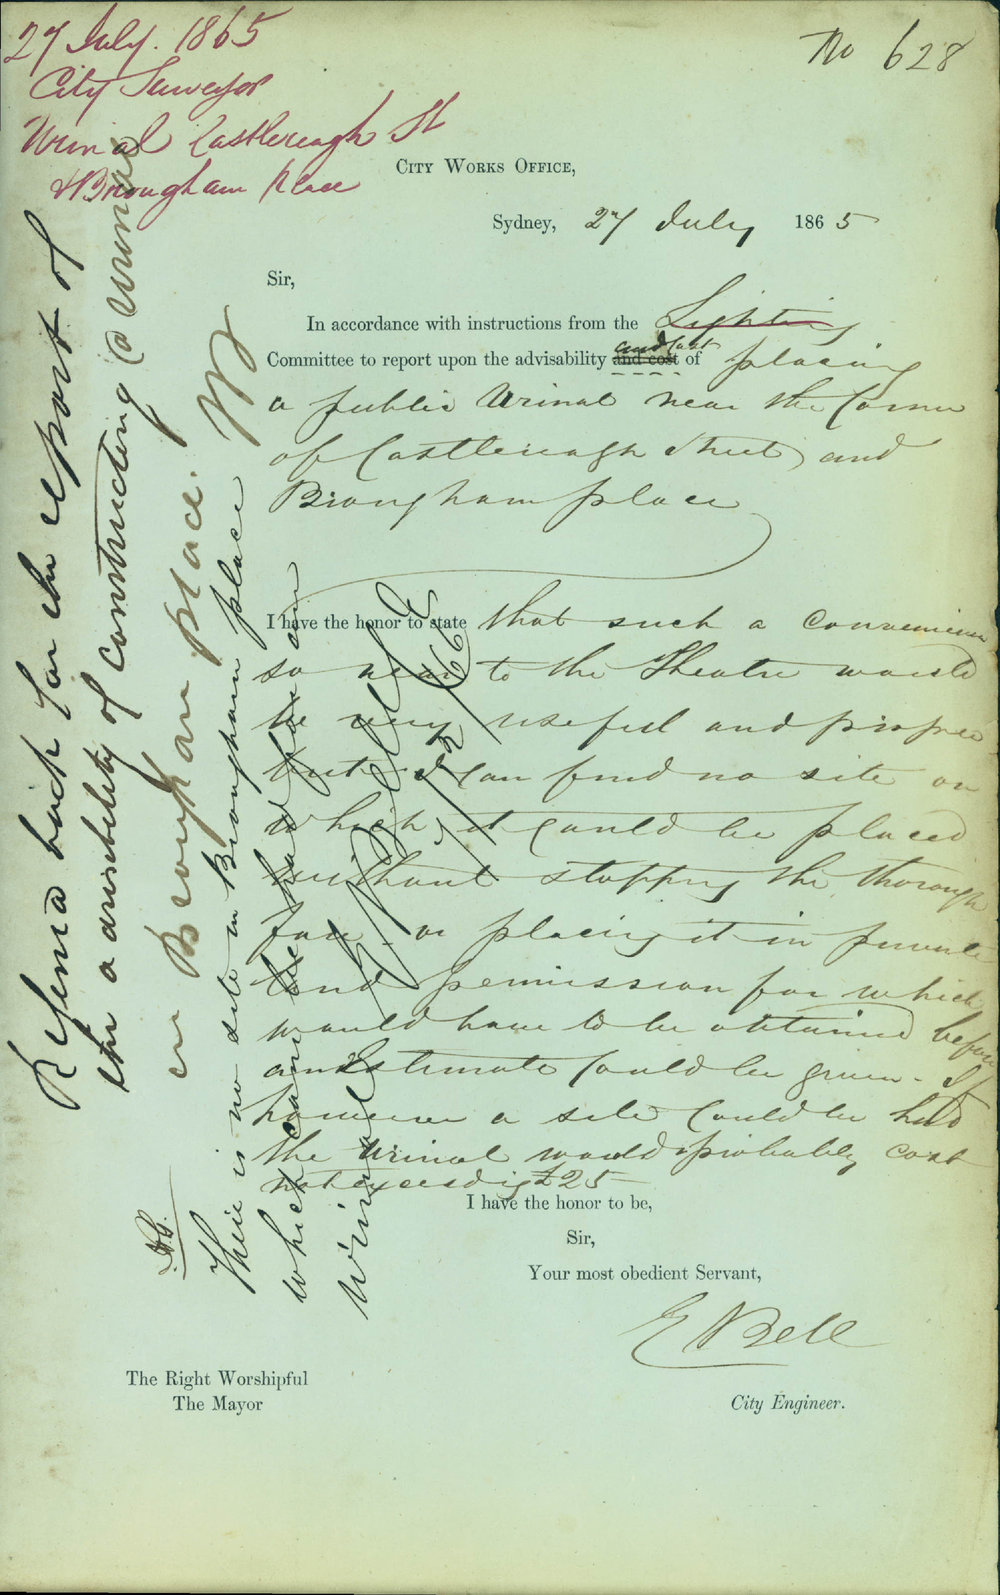 27 July. 1865
City Surveyor
Urinal Castlereagh St
& Brougham Place
No 628
City Works Office,
Sydney, 27 July 1865
Sir,
In accordance with instructions from the Lighting
Committee to report upon the advisability and cost and cost of placing
a public Urinal near the Corner
of Castlereagh Street and
Brougham place
I have the honor to state that such a convenience
so near to the Theatre would
be very useful and proper
but I can find no site on
which it could be placed
without stopping the thorough
fare or placing it in private
land permission for which
would have to be obtained before
an Estimate could be given. If
however a site could be had
the Urinal would probably cost
not exceeding £25
I have the honor to be,
Sir,
Your most obedient Servant,
E Bell
City Engineer.
The Right Worshipful
The Mayor
Referred back for the report of
the advisibility of constructing a urinal
in Brougham place.
There is no site in Brougham place
which can be had for an
Urinal
E Bell